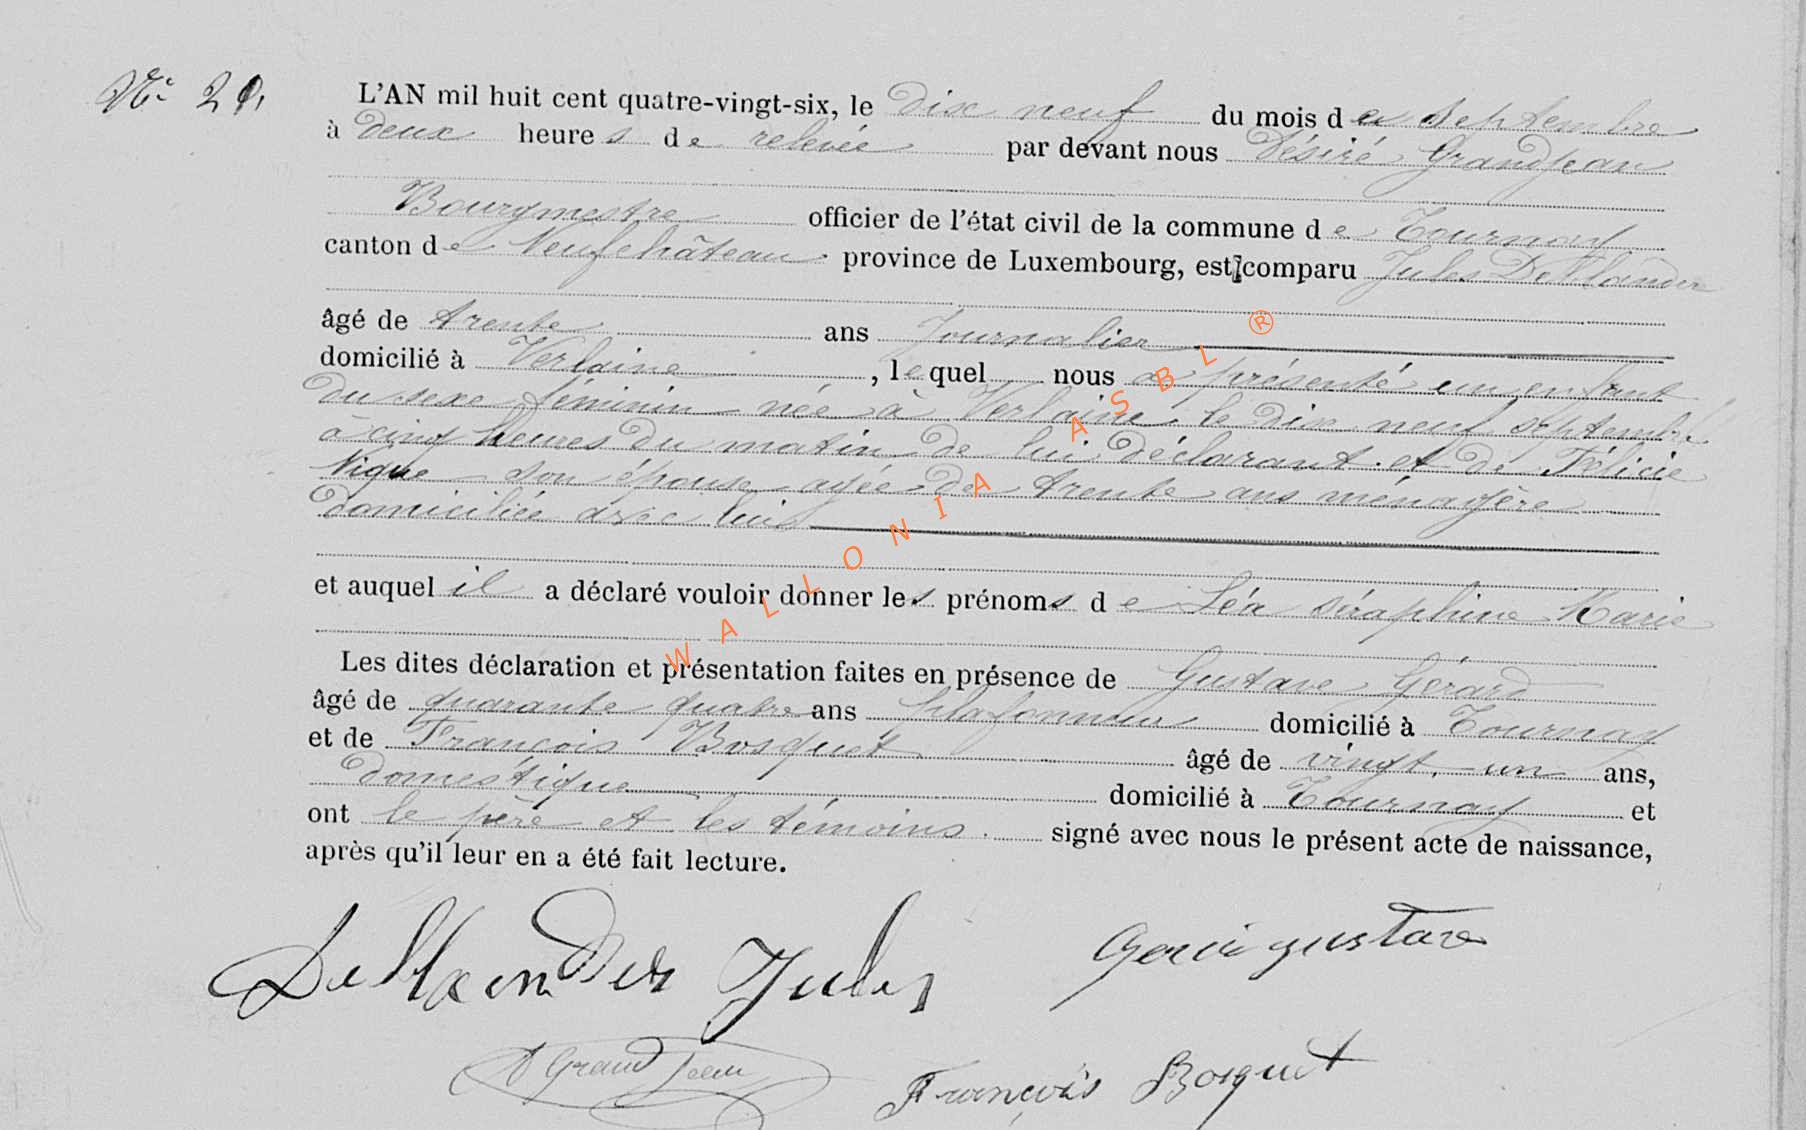 N° 20.
L'AN mil huit cent quatre-vingt-six, le Dix neuf du mois de septembre
à deux heures de relevée par devant nous Désiré Grandjean
Bourgmestre officier de l'état civil de la commune de Tournay
canton de Neufchâteau province de Luxembourg, est comparu Jules
âgé de trente ans Journalier
domicilié à Verlaine, lequel nous a présenté un enfant
du sexe féminin née à Verlaine le dix neuf septembre
à cinq heures du matin de lui déclarant et de Félicie
Nique son épouse agée de trente ans ménagère
domiciliée avec lui
et auquel il a déclaré vouloir donner les prénoms de Léa séraphine Marie
Les dites déclaration et présentation faites en présence de Gustave Gérard
âgé de quarante quatre ans plafonneur domicilié à Tournay
et de François Bosquet âgé de vingt un ans,
domestique domicilié à Tournay et
ont le père et les témoins signé avec nous le présent acte de naissance,
après qu'il leur en a été fait lecture.
Jules gustave
D Grandjean François Bosquet
WALLONIA ASBL ®